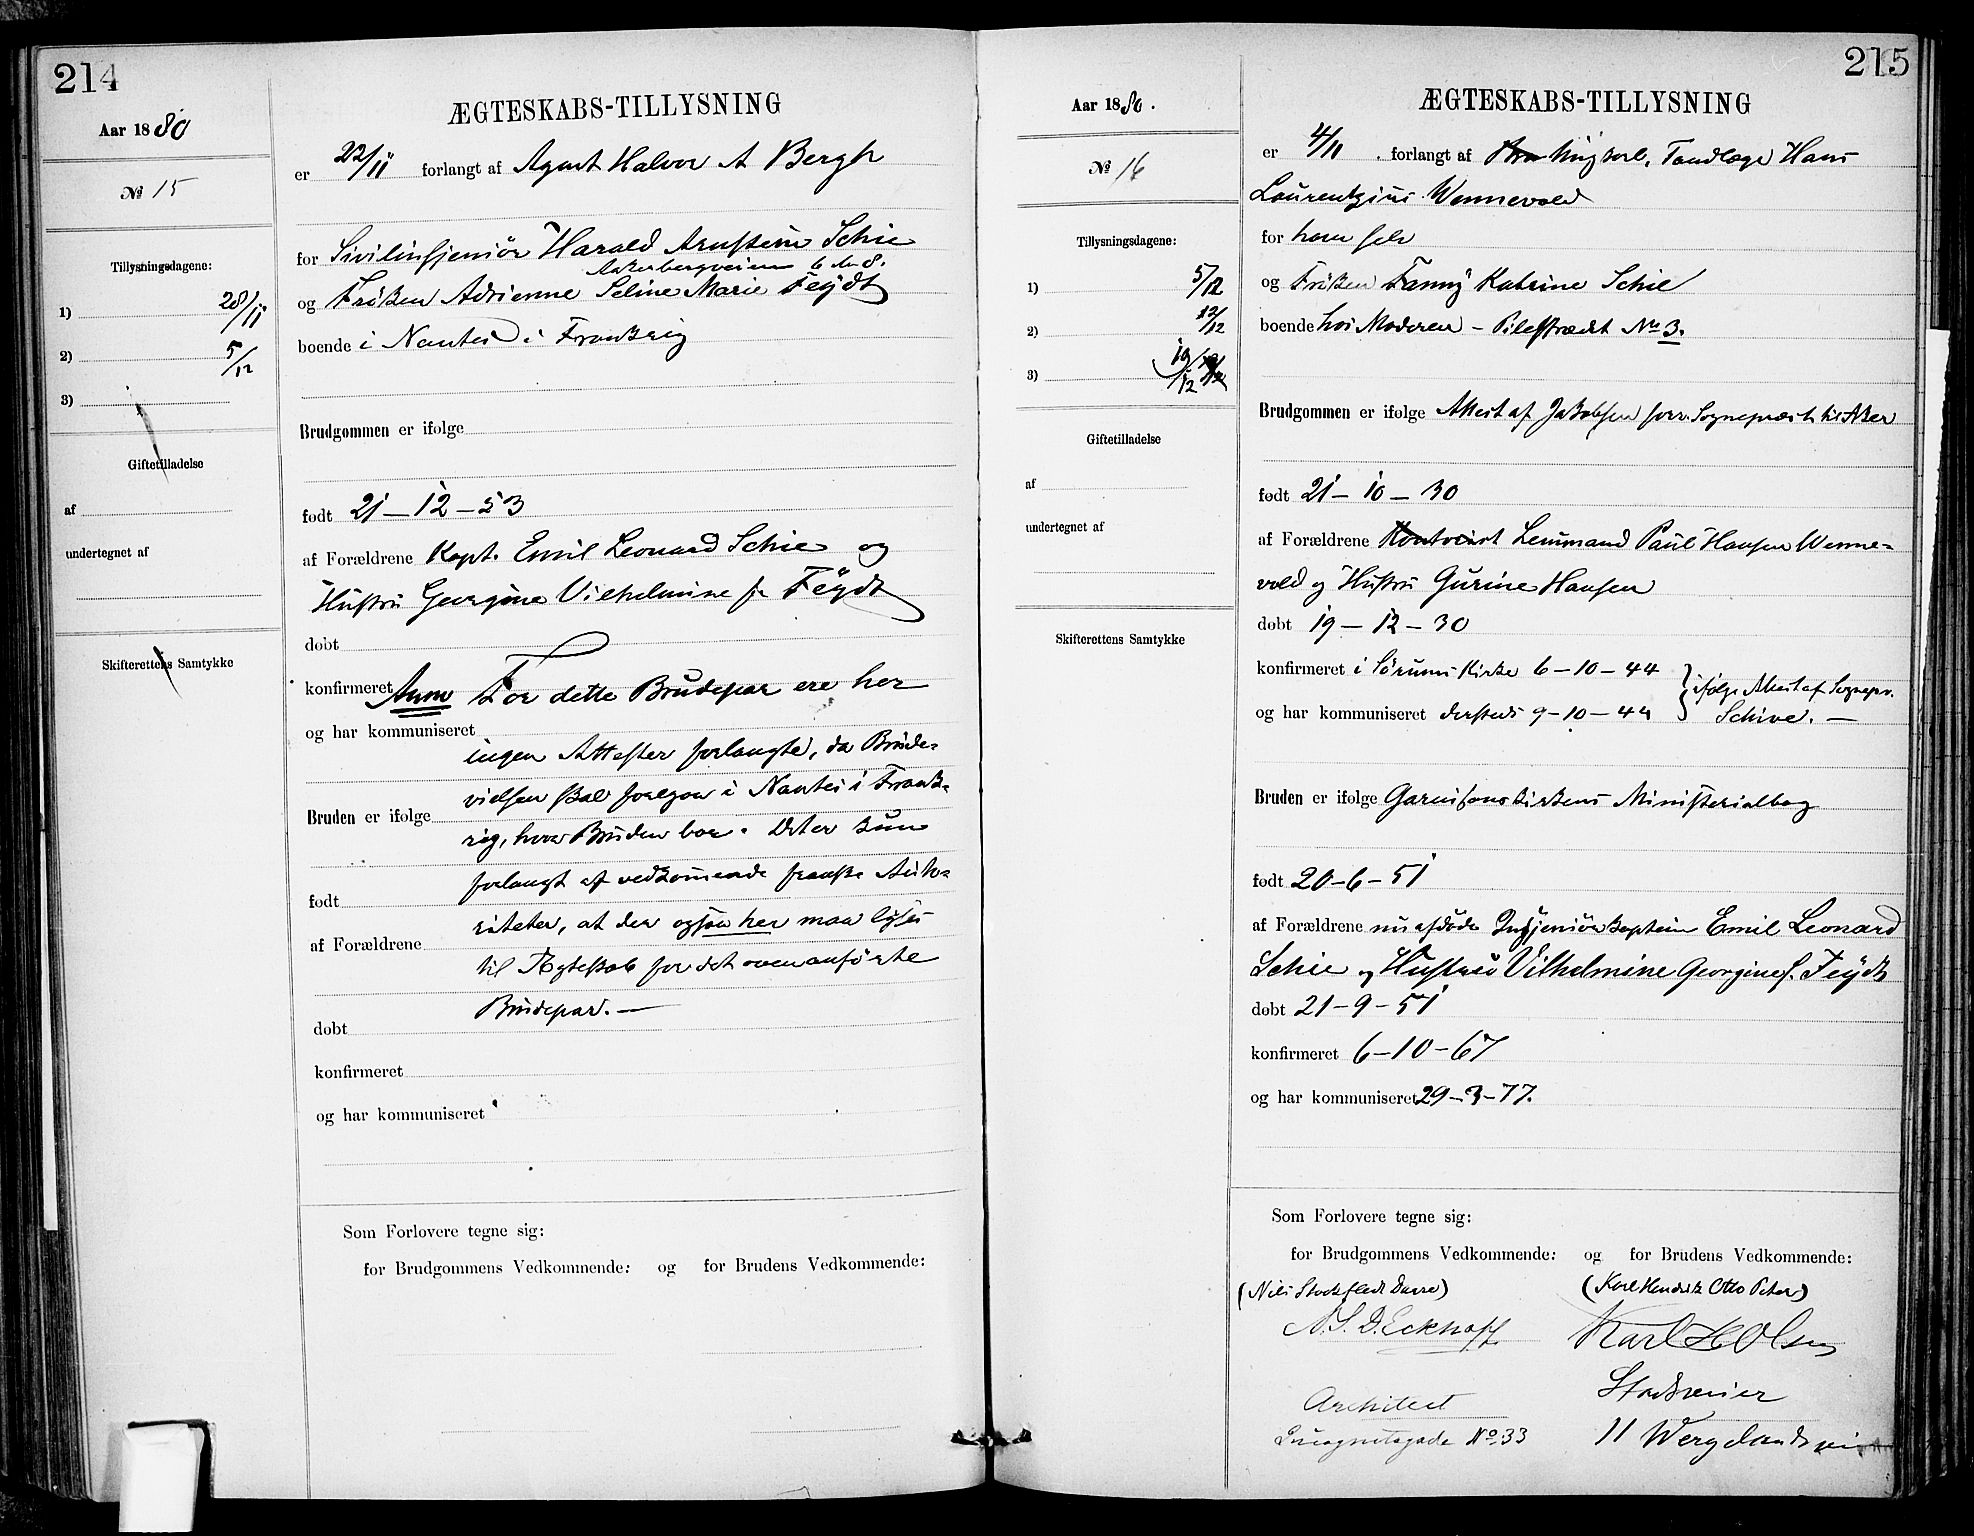 214
Aar 1880
№ 15
Tillysningsdagene:
1) 28/11
2) 5/12
3)
Giftetilladelse
af
undertegnet af
Skifterettens Samtykke
ÆGTESKABS-TILLYSNING
er 22/11 forlangt af Agent Halvor A Bergh
for Sivilinsjeniör Harald Arnstein Schie
Akerbergveien 6 den 8.
og Fröken Adrienne Seline Marie Feÿdt
boende i Nantes i Frankrig
Brudgommen er ifølge
født 21 – 12 – 53
af Forældrene Kapt. Emil Leonard Schie og
Hustru Georgine Vilhelmine f. Feÿdt
døbt
konfirmeret Anm For dette Brudepar ere her
og har kommuniseret
ingen Attester forlangte, da Brude-
vielsen skal foregaa i Nantes i Frank-
Bruden er ifølge
rig, hvor Bruden bor. Det er kun
forlangt af vedkommende franske Auto-
født
riteter, at der ogsaa her maa lyses
af Forældrene
til Ægteskab for det ovenanförte
Brudepar. —
døbt
konfirmeret
og har kommuniseret
Som Forlovere tegne sig:
for Brudgommens Vedkommende: og for Brudens Vedkommende:
215
Aar 1880.
№ 16
Tillysningsdagene:
1) 5/12
2) 12/12
3) 19/12
Giftetilladelse
af
undertegnet af
Skifterettens Samtykke
ÆGTESKABS-TILLYSNING
er 4/11 . forlangt af Ungkarl, Tandlæge Hans
Laurentzius Wennevold
for ham selv
og Fröken Fanny Katrine Schie
boende hos Moderen – Pilestrædet No 3.
Brudgommen er ifølge Attest af Jakobsen forr. Sognepræst til Aker
født 21 – 10 – 30
af Forældrene Kontorist Lensmand Paul Hansen Wenne-
vold og Hustru Gurine Hansen
døbt 19 – 12 – 30
konfirmeret i Sörums Kirke 6 – 10 – 44
ifölge Attest af Sognepr.
og har kommuniseret dersteds 9 – 10 – 44
Schive. —
Bruden er ifølge Garnisonskirkens Ministerialbog
født 20 – 6 – 51
af Forældrene nu afdöde Ingeniörkaptein Emil Leonard
Schie og Hustru Vilhelmine Georgine f. Feÿdt
døbt 21 – 9 – 51
konfirmeret 6 – 10 – 67
og har kommuniseret 29 – 3 – 77.
Som Forlovere tegne sig:
for Brudgommens Vedkommende: og for Brudens Vedkommende:
(Nils Stockfleth Darre) (Karl Hendrik Otto Peter)
N. S. D. Eckhoff Karl H O Olsen
Architect
No. 33 11 Wergelandsvei